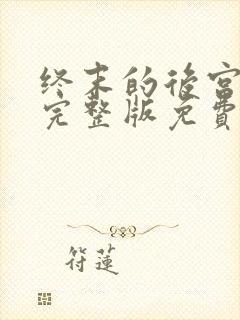 终末的後宫
完整版免費
符蓮